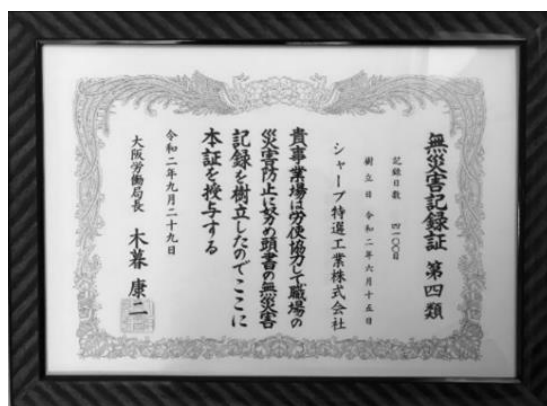 無災害記録証 第四類
記録日数 四一〇〇日
樹立日 令和二年六月十五日
シャープ特選工業株式会社
貴事業場は労使協力して職場の
災害防止に努め頭書の無災害
記録を樹立したのでここに
本証を授与する
令和二年九月二十九日
大阪労働局長 木暮康二